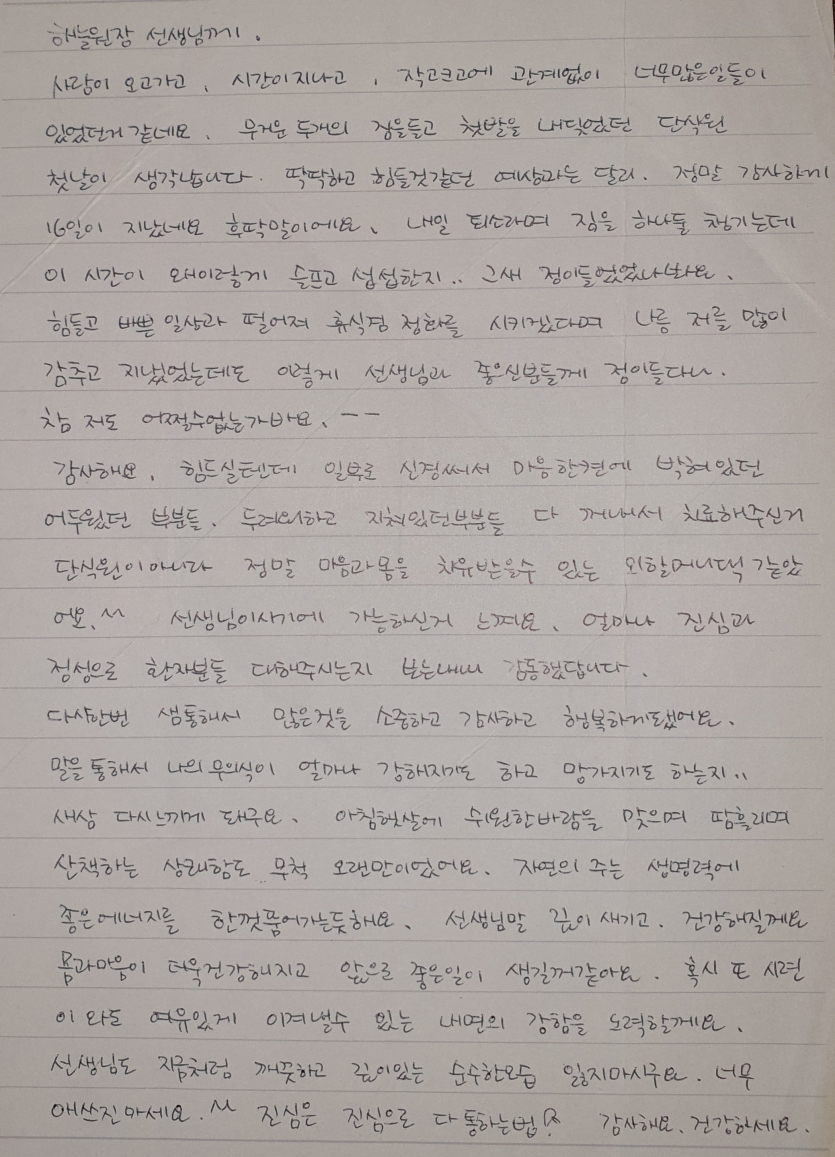 해늘원장 선생님께.
사람이 오고가고, 시간이지나고, 작고크고에 관계없이 너무많은일들이
있었던거 같네요. 무거운 두개의 짐을들고 첫발을 내딪었던 단식원
첫날이 생각납니다. 딱딱하고 힘들것같던 예상과는 달리. 정말 감사하게
16일이 지났네요 후딱말이에요. 내일 퇴소라며 짐을 하나둘 챙기는데
이 시간이 왜이렇게 슬프고 섭섭한지.. 그새 정이들었었나봐요.
힘들고 바쁜 일상과 떨어져 휴식겸 정화를 시키겠다며 나름 저를 많이
감추고 지냈었는데도 이렇게 선생님과 좋으신분들께 정이들다니.
참 저도 어쩔수없는가바요. --
감사해요. 힘드실텐데 일부로 신경써서 마음한켠에 박혀있던
어두웠던 부분들. 두려워하고 지쳐있던부분들 다 꺼내서 치료해주신거
단식원이아니라 정말 마음과몸을 치유받을수 있는 외할머니댁 같았
어요. ^^ 선생님이시기에 가능하신거 느껴요. 얼마나 진심과
정성으로 환자분들 대해주시는지 보는내내 감동했답니다.
다시한번 샘통해서 많은것을 소중하고 감사하고 행복하게됐어요.
말을통해서 나의무의식이 얼마나 강해지기도 하고 망가지기도 하는지..
새삼 다시느끼게 돼구요. 아침햇살에 쉬원한바람을 맞으며 땀흘리며
산책하는 상쾌함도 무척 오랜만이었어요. 자연의 주는 생명력에
좋은에너지를 한껏품어가는듯해요. 선생님말 깊이 새기고. 건강해질께요
몸과마음이 더욱건강해지고 앞으로 좋은일이 생길꺼같아요. 혹시 또 시련
이 와도 여유있게 이겨낼수 있는 내면의 강함을 노력할께요.
선생님도 지금처럼 깨끗하고 깊이있는 순수한모습 잃지마시구요. 너무
애쓰진마세요. ^^ 진심은 진심으로 다통하는법 감사해요. 건강하세요.